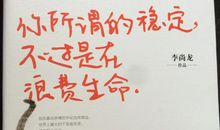 你所谓的稳定，
不过是在
浪费生命.
李尚龙
作品